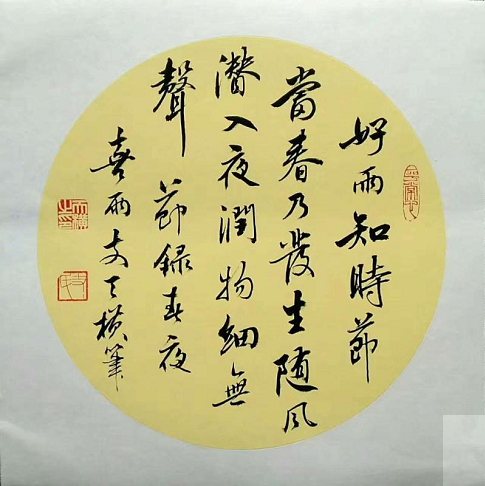 好雨知時節
當春乃發生随風
潛入夜潤物細無
聲 節録春夜
喜雨 天横筆